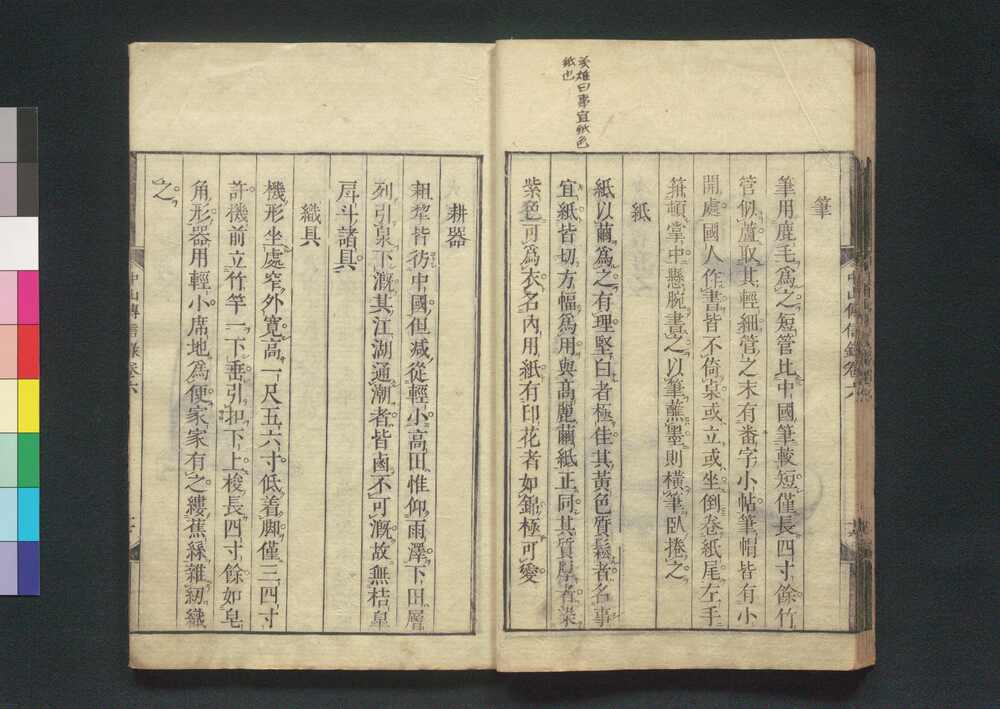 筆
筆用鹿毛爲之短管比中國筆較短僅長四寸餘竹
管似蘆取其輕細管之末有番字小帖筆帽皆有小
開處國人作書皆不倚桌或立或坐倒卷紙尾左手
箍頓掌中懸腕書之以筆蘸墨則橫筆臥捲之
紙
紙以繭爲之有理堅白者極佳其黃色質鬆者名事
宜紙皆切方幅爲用與高麗繭紙正同其質厚者染
紫色可爲衣名内用紙有印花者如錦極可愛
曰事宜紙色
紙也
中山傳信錄卷六
耕器
耟犂皆彷中國但減從輕小高田惟仰雨澤下田層
列引泉下漑其江湖通潮者皆鹵不可漑故無桔臯
戽斗諸具
織具
機形坐處窄外寬高一尺五六寸低着脚僅三四寸
許機前立竹竿一下垂引扣下上梭長四寸餘如皂
角形器用輕小席地爲便家家有之縷蕉絲雜紉織
之
中山傳信錄卷六